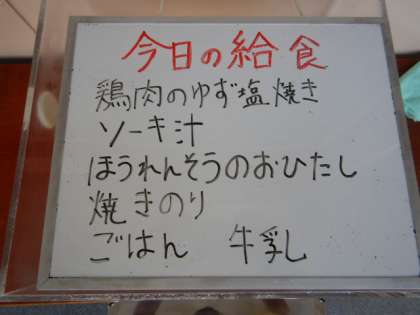 今日の給食
鶏肉のゆず塩焼き
ソーキ汁
ほうれんそうのおひたし
焼きのり
ごはん 牛乳